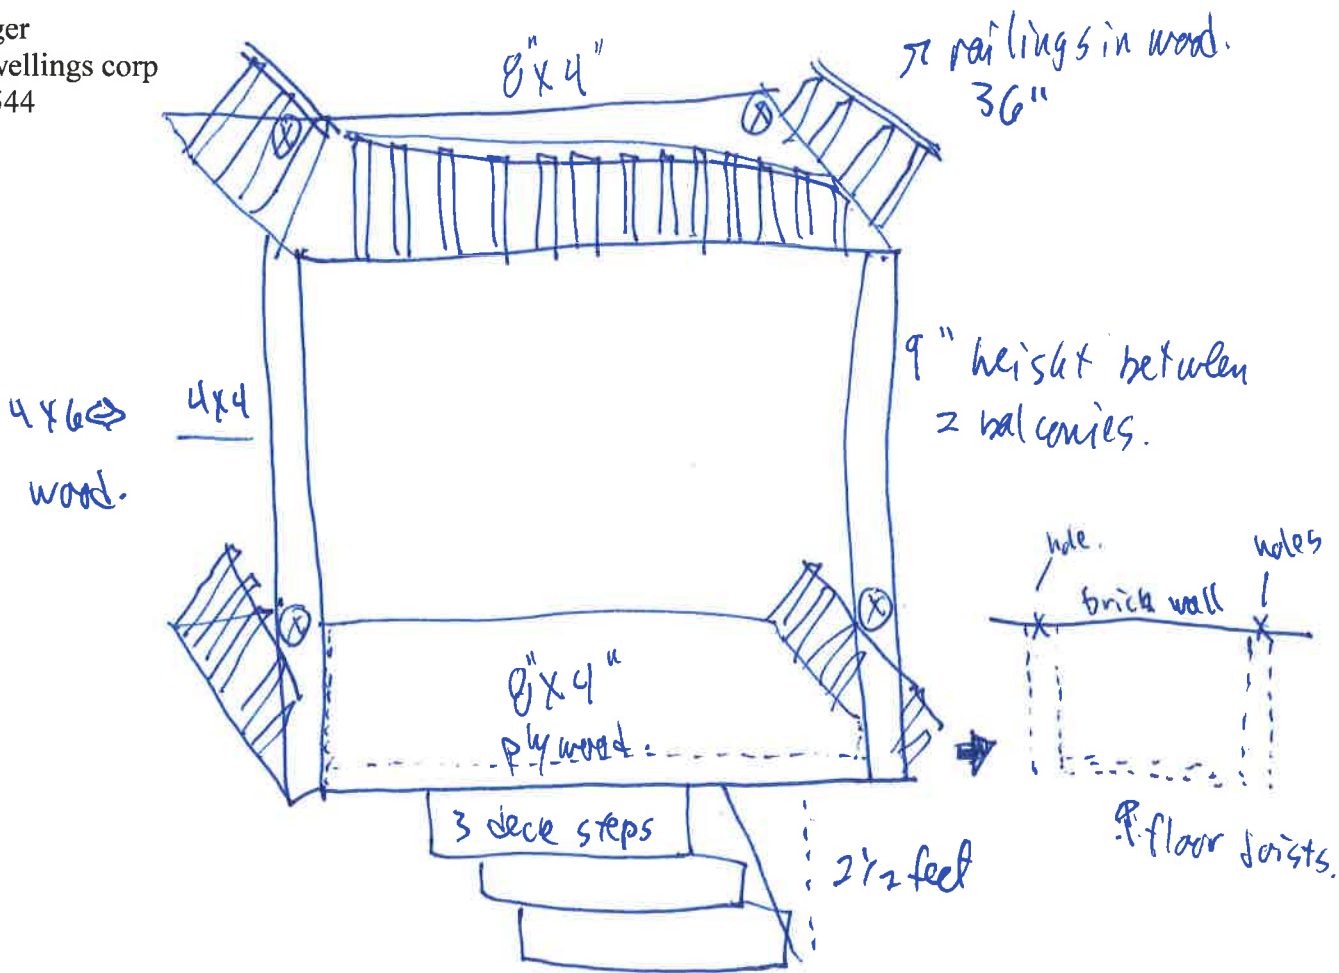 ger
vellings corp
544
8"x4"
railings in wood.
36"
9" height between
2 balconies.
4x6
4x4
wood.
hole.
holes
brick wall
8"x4"
plywood.
3 deck steps
2 1/2 feet
floor Joists.